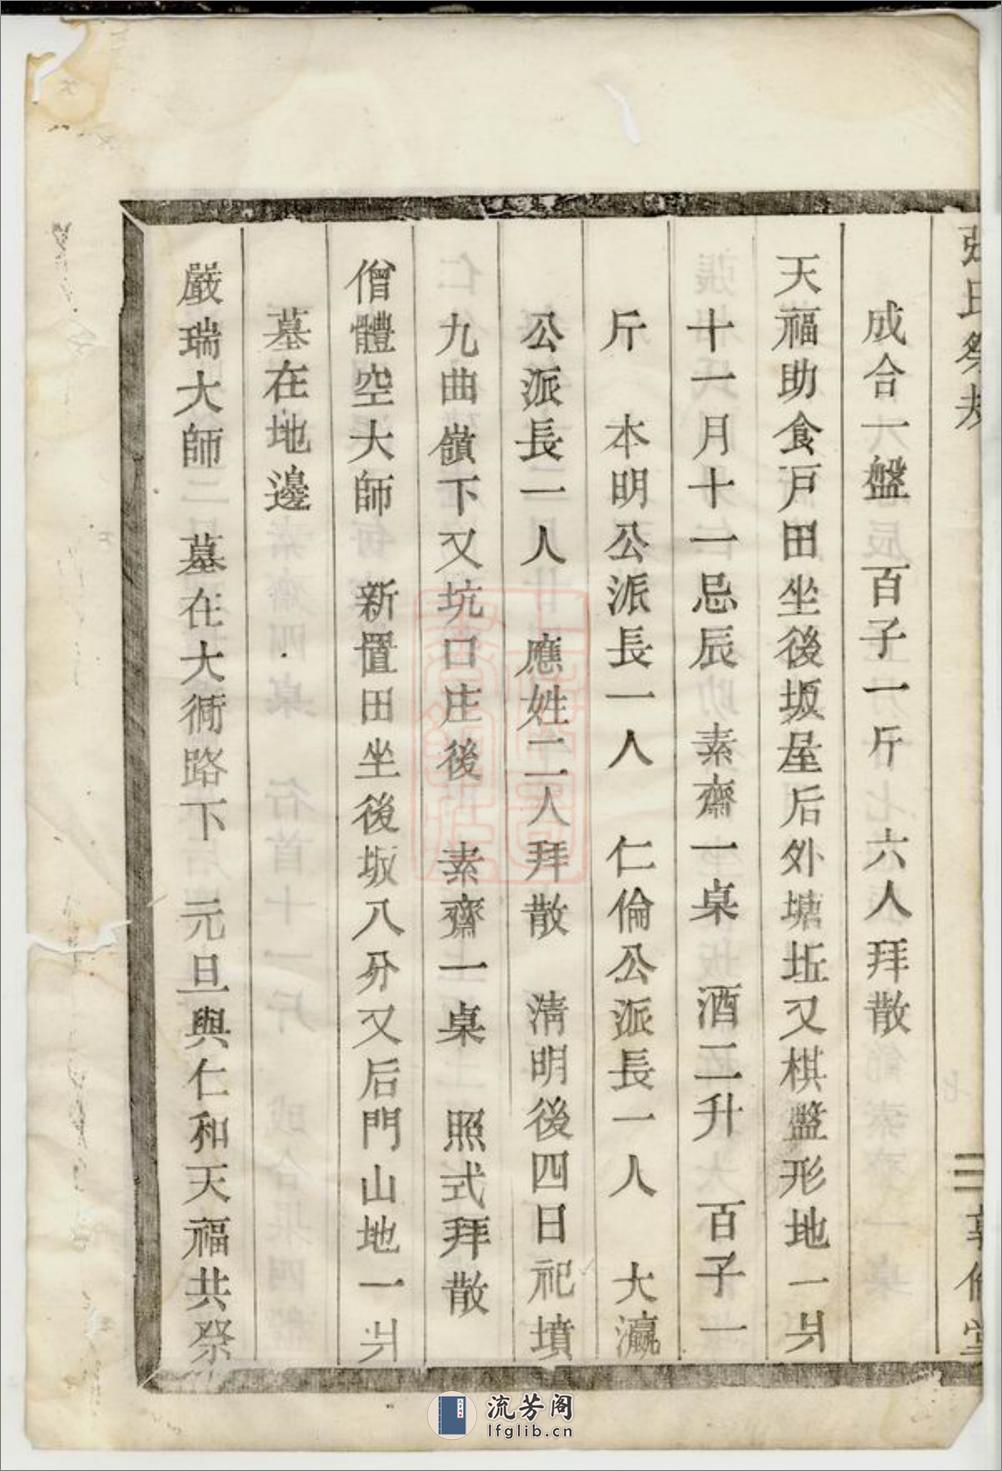 張氏祭規
敦倫堂
成合一盤 百子一斤 六人拜散
天福助食戸田坐後坂屋后外塘坵又棋盤形地一爿
十一月十一忌辰 素齋一桌 酒二升 百子一
斤 本明公派長一人 仁倫公派長一人 大瀛
公派長一人 應姓二人拜散 清明後四日祀墳
九曲嶺下又坑口庄後 素齋一桌 照式拜散
僧體空大師 新置田坐後坂八分又后門山地一爿
墓在地邊
嚴瑞大師 墓在大衕路下 元旦與仁和天福共祭
流芳阁
lfglib.cn